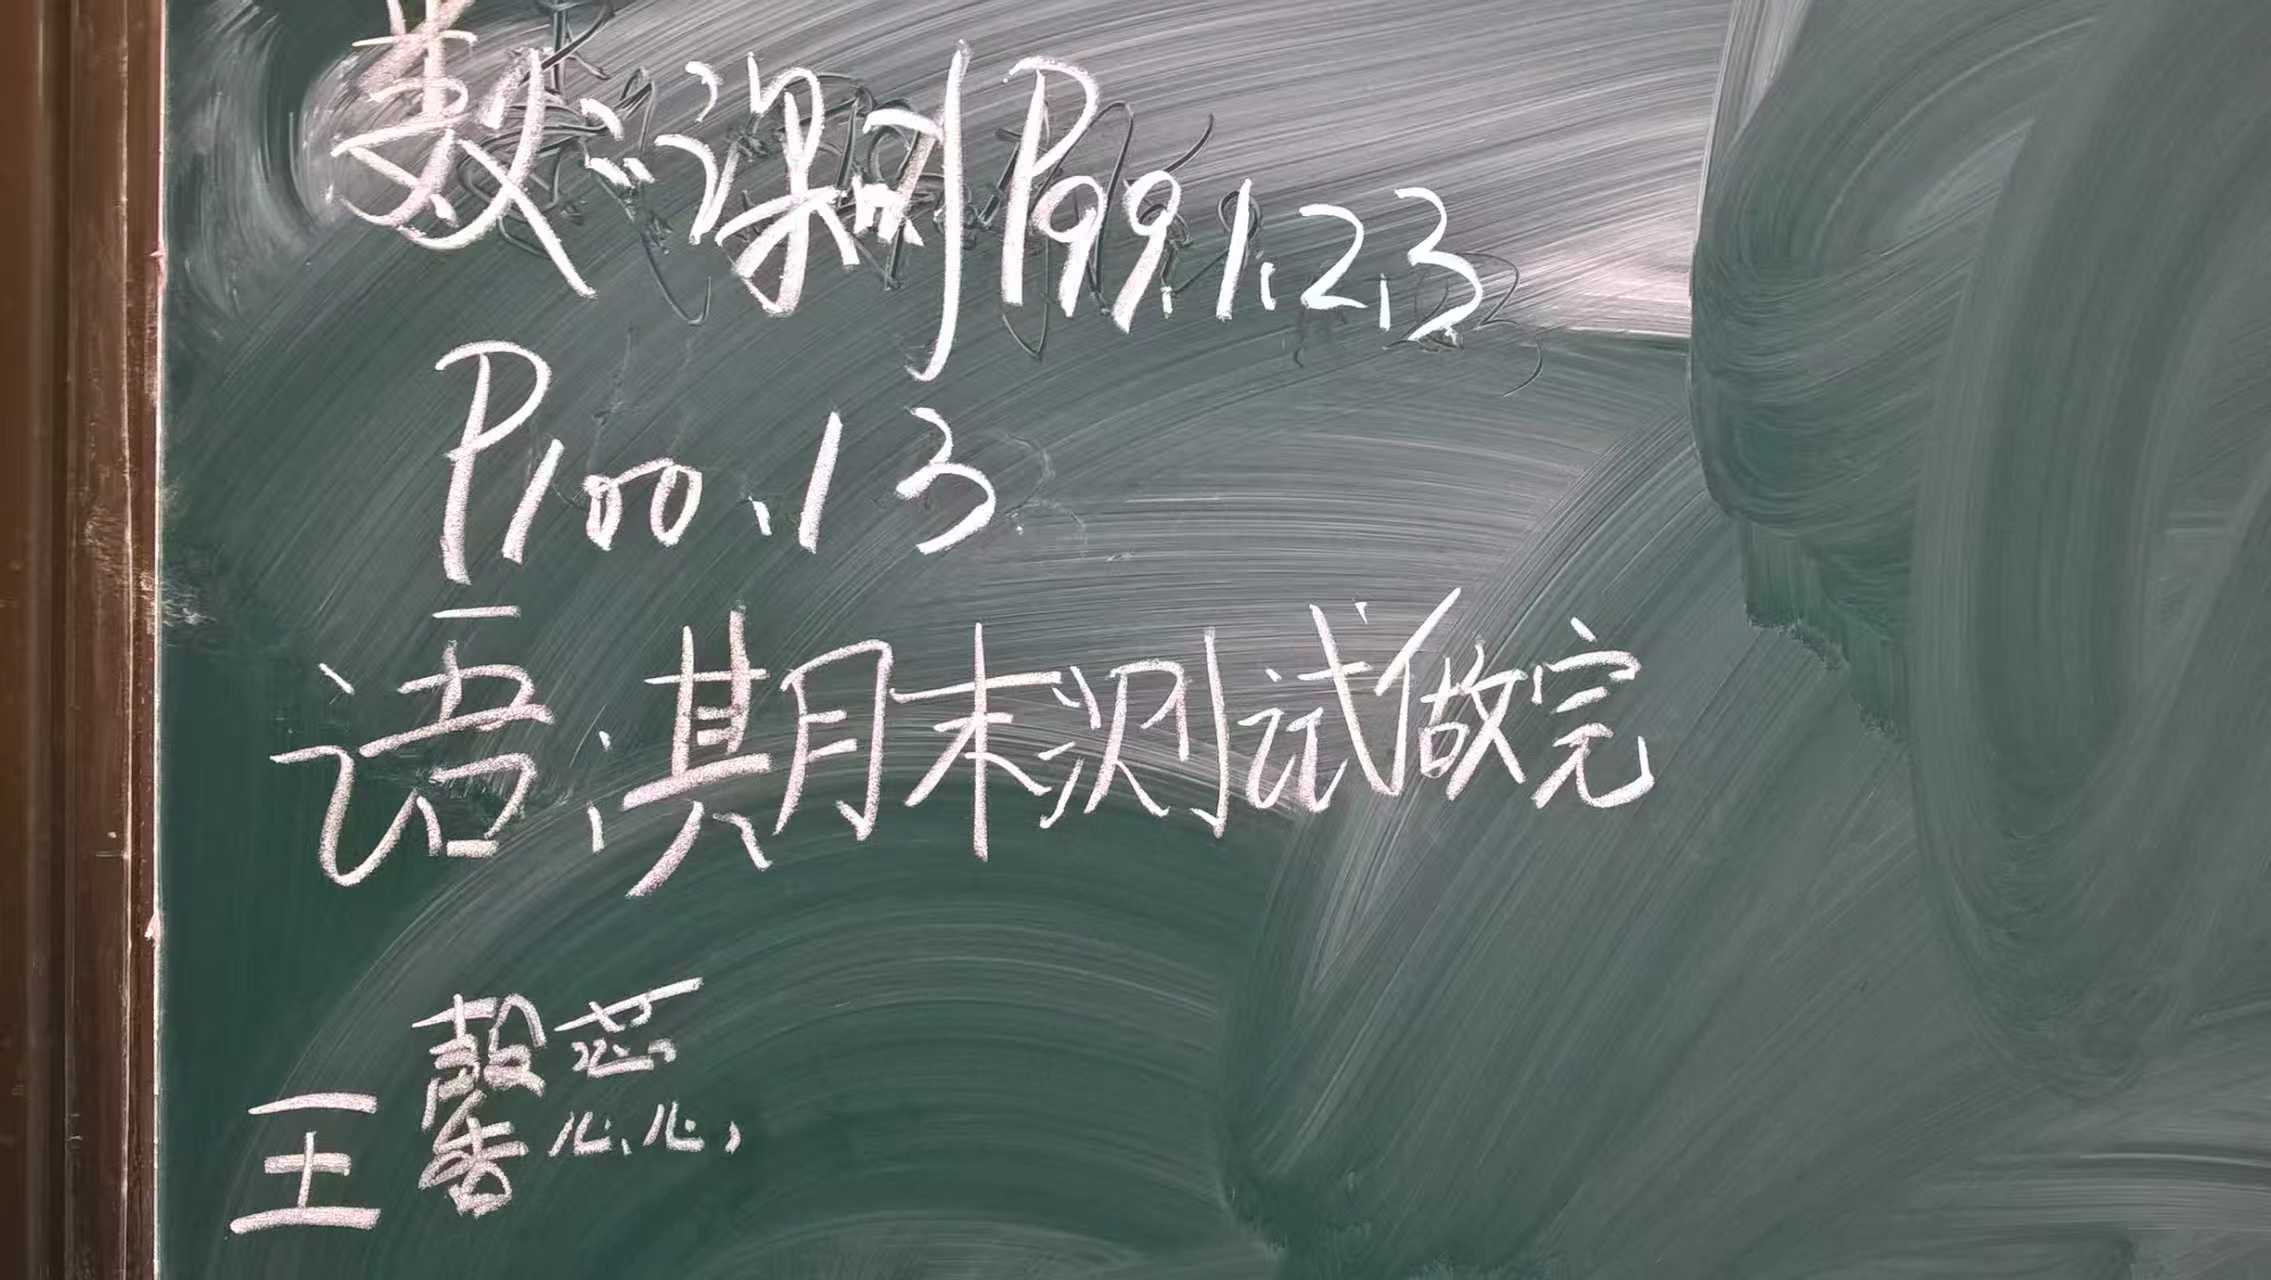 数:课时P99.1.2.3
P100.13
语:期末测试做完
王馨蕊